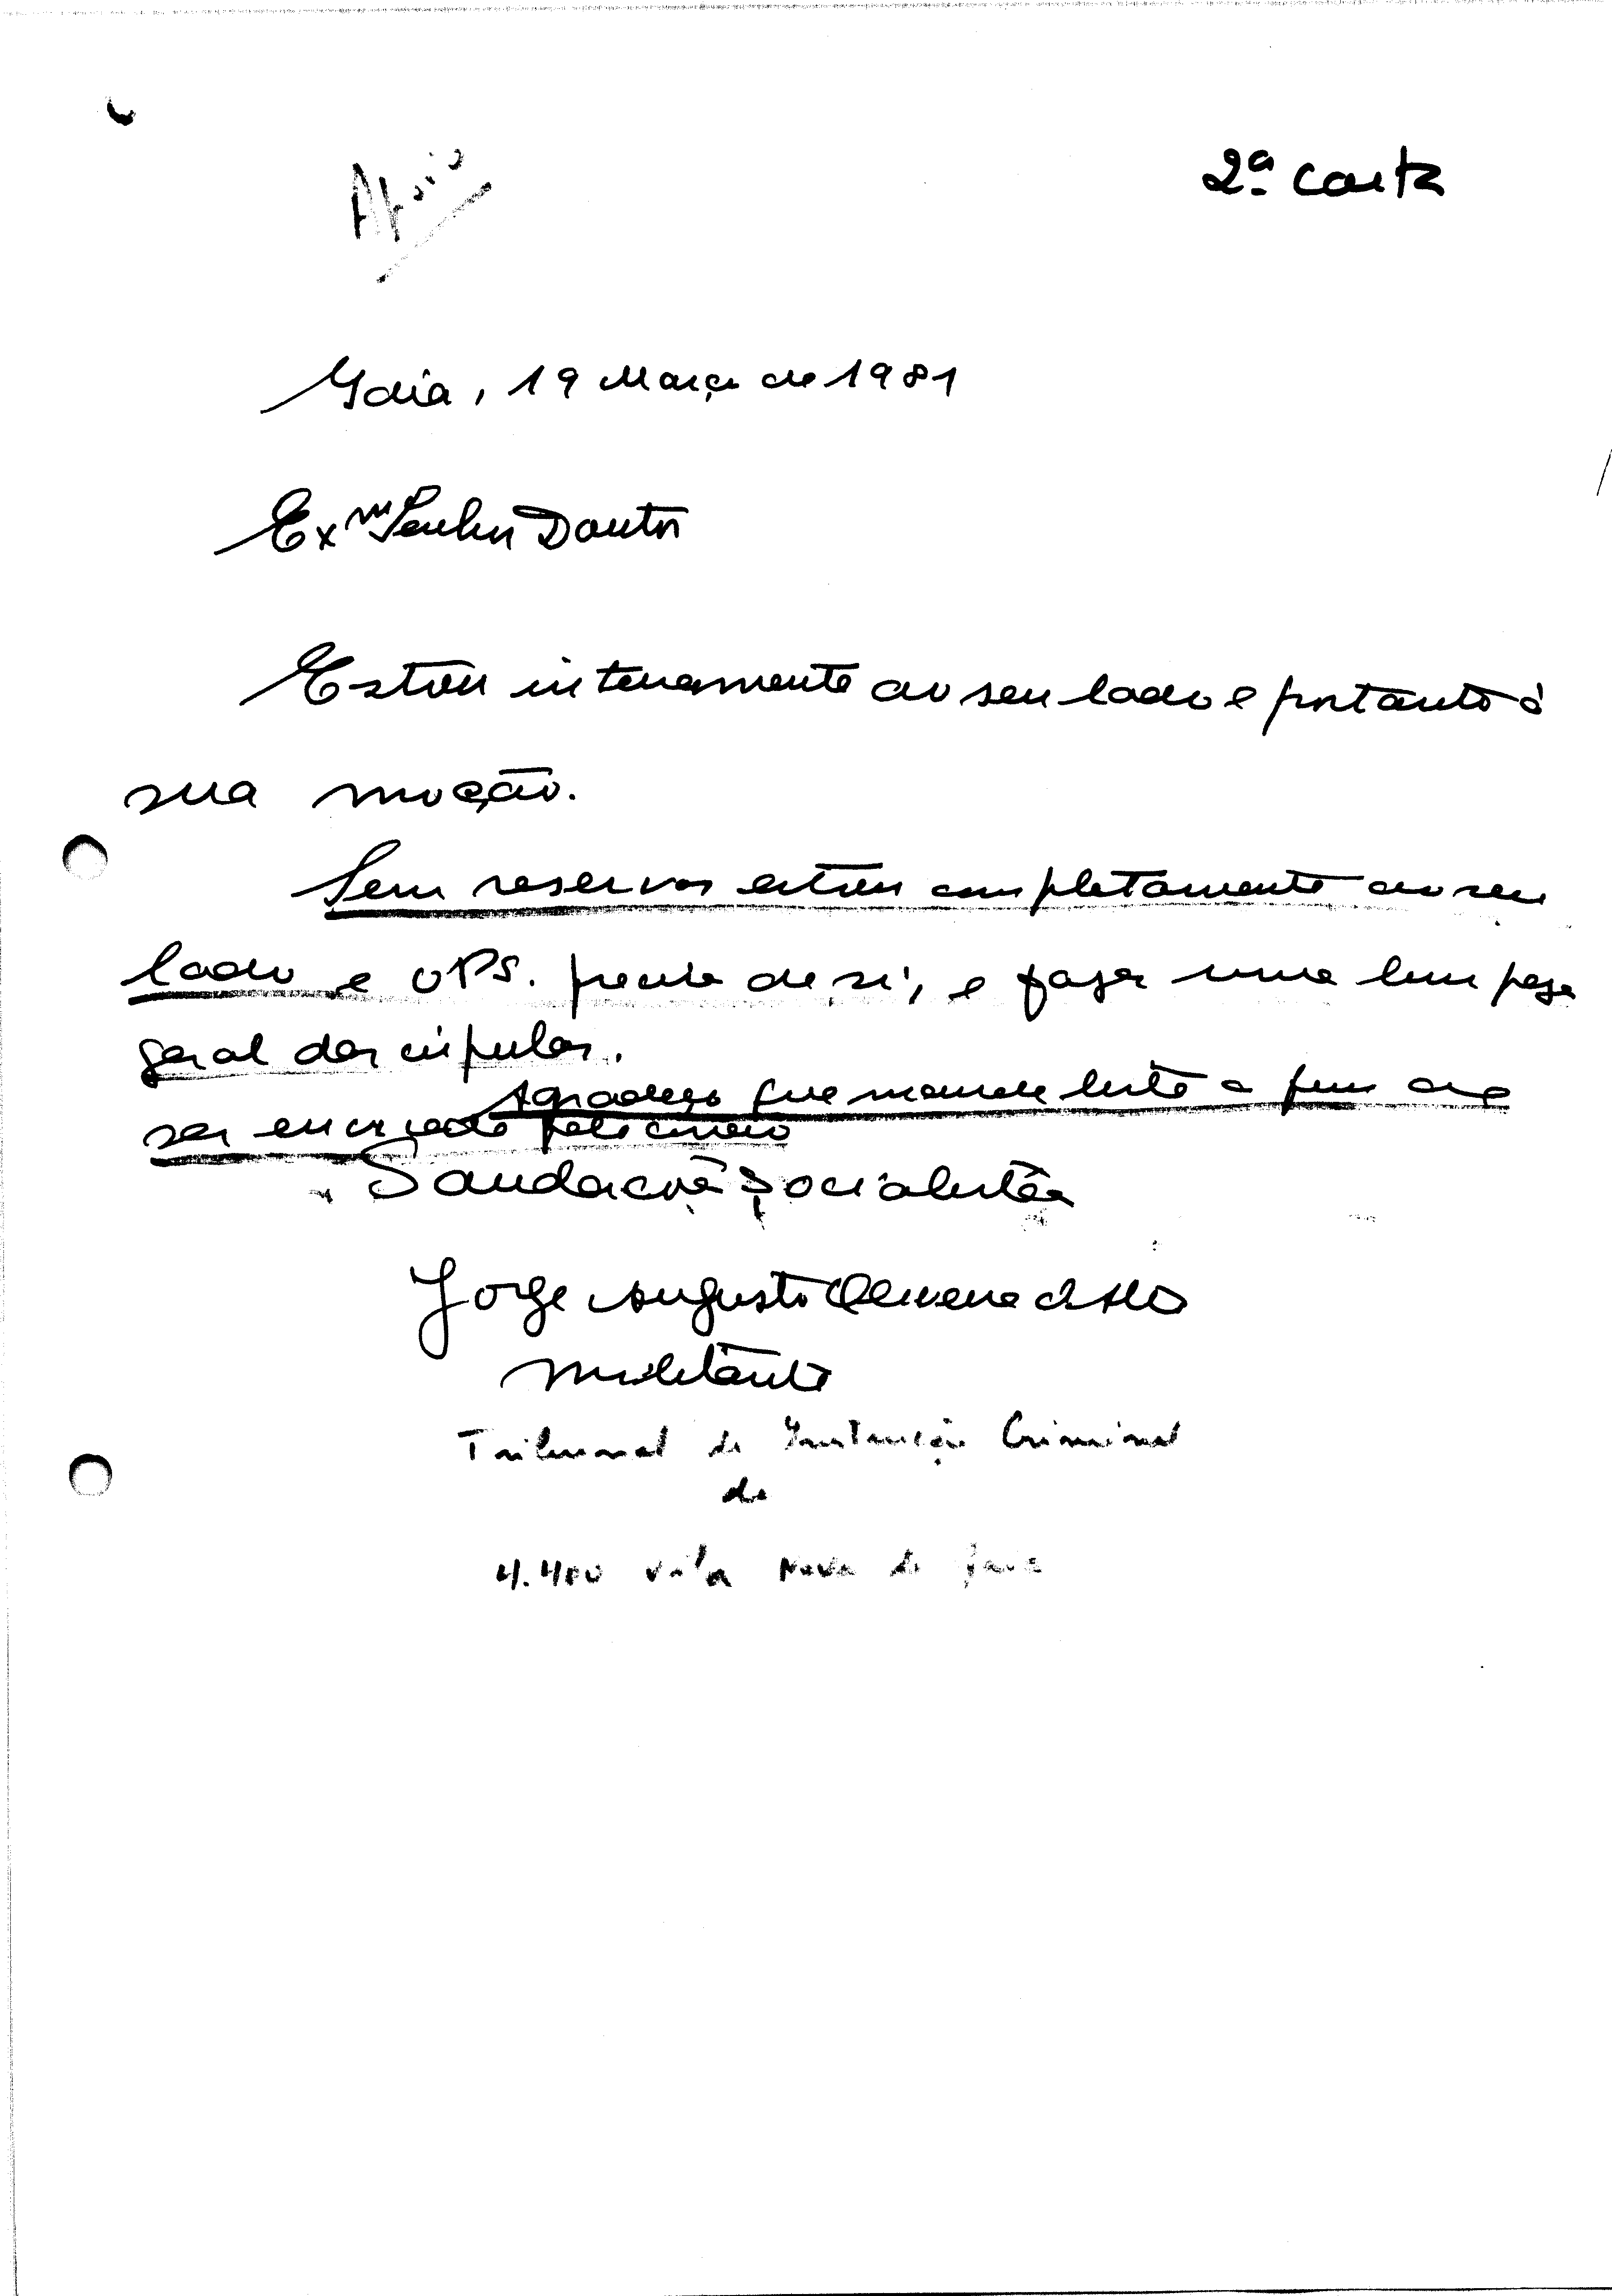 Apoio
2ª carta
Gaia, 19 Março de 1981
Exm Senhor Doutor
Estou inteiramente ao seu lado e portanto à
sua moção.
Sem reservas estou completamente ao seu
lado e o PS. precisa de si, e faça uma limpeza
geral das cúpulas.
Agradeço que mande lista a fim de
ser pelo correio
Saudações Socialistas
Jorge Augusto
militante
Tribunal de Instrução Criminal
de
4.400 Vila Nova de Gaia